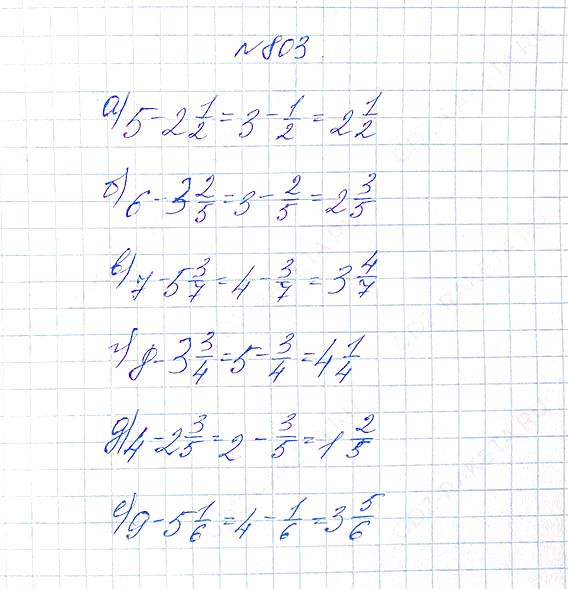 №803.
а) 5 - 2 1/2 = 3 - 1/2 = 2 1/2
б) 6 - 3 2/5 = 3 - 2/5 = 2 3/5
в) 7 - 5 3/7 = 4 - 3/7 = 3 4/7
г) 8 - 3 3/4 = 5 - 3/4 = 4 1/4
д) 4 - 2 3/5 = 2 - 3/5 = 1 2/5
е) 9 - 5 1/6 = 4 - 1/6 = 3 5/6